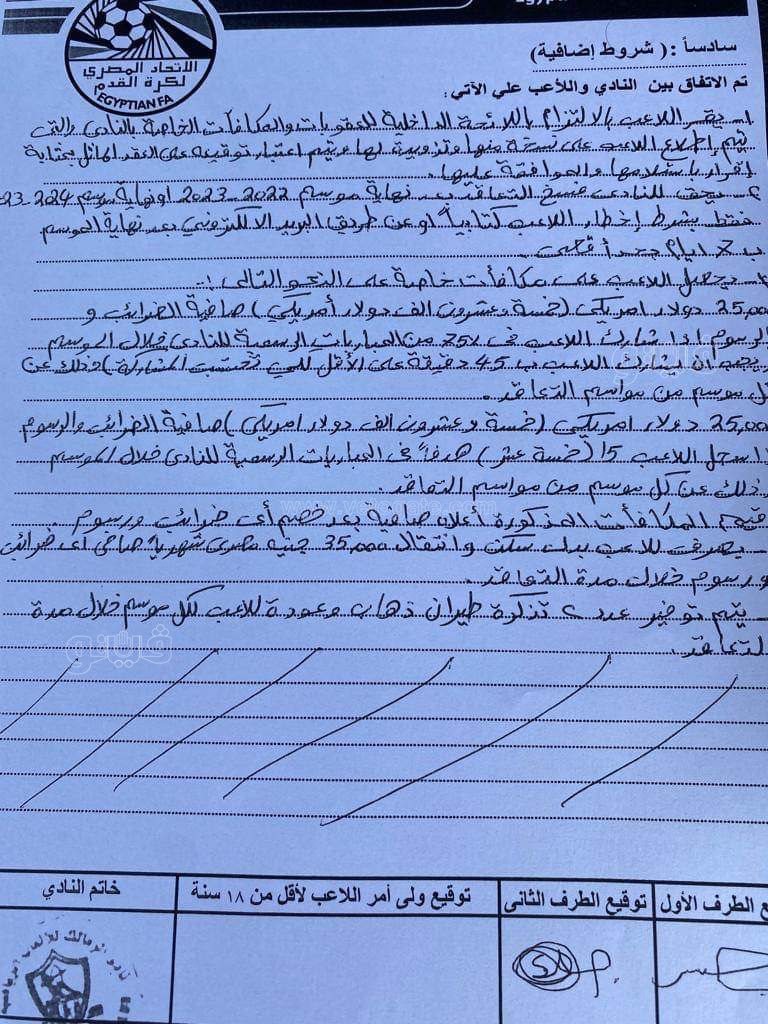 الاتحاد المصري
لكرة القدم
EGYPTIAN FA
سادساً : ( شروط إضافية)
تم الاتفاق بين النادي واللاعب علي الآتي :
١ـ يقر اللاعب بالالتزام باللائحة الداخلية للعقوبات والمكافآت الخاصة بالنادي والتي
يتم إطلاع اللاعب على نسخة منها وتزويده لها ويتم اعتبار توقيعه على العقد الماثل بمثابة
إقرار باستلامها والموافقة عليها .
٢ـ يحق للنادي فسخ التعاقد بعد نهاية موسم 2022-2023 او نهاية موسم 2024-23
فقط بشرط إخطار اللاعب كتابياً او عن طريق البريد الالكتروني بعد نهاية الموسم
ب ايام بحد أقصى .
يحصل اللاعب على مكافآت خاصة على النحو التالي :
25,00 دولار امريكي (خمسة وعشرون الف دولار أمريكي) صافية الضرائب و
الرسوم اذا شارك اللاعب في 75٪ من المباريات الرسمية للنادي خلال الموسم
يجب ان يشارك اللاعب ب 45 دقيقة على الأقل لكي تحتسب المشاركة) وذلك عن
كل موسم من مواسم التعاقد .
25,00 دولار امريكي (خمسة وعشرون الف دولار امريكي) صافية الضرائب والرسوم
اذا سجل اللاعب 15 (خمسة عشر) هدفاً في المباريات الرسمية للنادي خلال الموسم
وذلك عن كل موسم من مواسم التعاقد .
المكافآت المذكورة اعلاه صافية بعد خصم أي ضرائب ورسوم
ـ يصرف للاعب بدل سكن وانتقال 35,000 جنيه مصري شهرياً صافي أي ضرائب
ورسوم خلال مدة التعاقد .
ـ يتم توفير عدد ٢ تذكرة طيران ذهاب وعودة للاعب لكل موسم خلال مدة
التعاقد .
ع الطرف الأول
توقيع الطرف الثانى
توقيع ولى أمر اللاعب لأقل من ١٨ سنة
خاتم النادي
نادي الزمالك للألعاب الرياضية